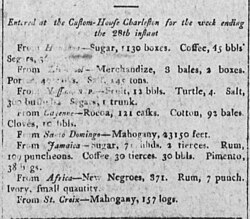 Entered at the Custom-House Charleston for the week ending
the 28th instant
From Sugar, 1130 boxes. Coffee, 45 bbls
Segars,
From Merchandize, 8 bales, 2 boxes.
Salt, tons.
From Fruit, 12 bbls. Turtle, 4. Salt,
300 bushels. Segars, 1 trunk.
From Cayenne—Rocoa, 121 casks. Cotton, 92 bales.
Cloves, 10 bbls.
From Santo Domingo—Mahogany, 43150 feet.
From Jamaica—Sugar, bbls, 2 tierces. Rum,
109 puncheons. Coffee, 30 tierces, 30 bbls. Pimento,
38 bags.
From Africa—New Negroes, 871. Rum, 7 punch.
Ivory, small quantity.
From St. Croix—Mahogany, 157 logs.